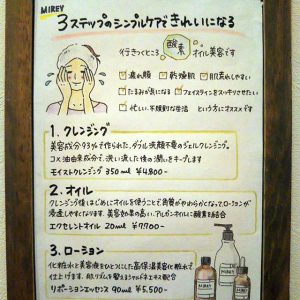 MIREY
3ステップのシンプルケアできれいになる
行きつくところ 酸素 オイル美容です
疲れ顔 乾燥肌 肌荒れしやすい
たるみが気になる フェイスラインをスッキリさせたい
忙しい、不規則な生活 という方にオススメです
1. クレンジング
美容成分93%で作られた、ダブル洗顔不要のジェルクレンジング。
コメ油由来成分で、洗い流した後の潤いをキープします
モイストクレンジング 350ml ¥4,800-
2. オイル
クレンジング後はじめにオイルを使うことで角質がやわらかくなってローションが
浸透しやすくなります。美容効果の高い、アルガンオイルに酸素を結合
エクセレントオイル 20ml ¥7,700-
3. ローション
化粧水と美容液をひとつにした高保湿美容化粧水で
仕上げます。
リポーションエッセンス 90ml ¥5,500-
MIREY
MIREY